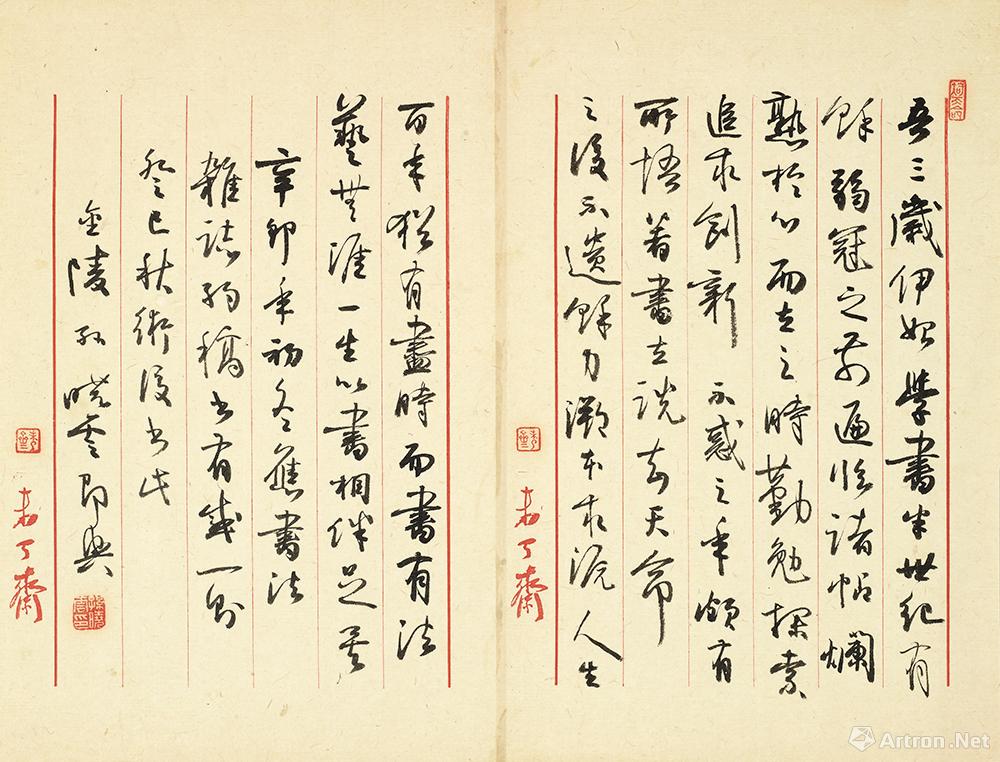 吾三歲伊始學書半世紀有
餘弱冠之前遍臨諸帖爛
熟於心而立之時勤勉探索
追求創新 不惑之年頗有
所悟著書立說知天命
之後不遺餘力溯本求源人生
未了齋
百年猶有盡時而書有法
藝無涯一生以書相伴足矣
辛卯年初冬應書法
雜誌約稿書有感一則
癸巳秋術後書此
金陵孫曉雲即興
未了齋
Artron.Net